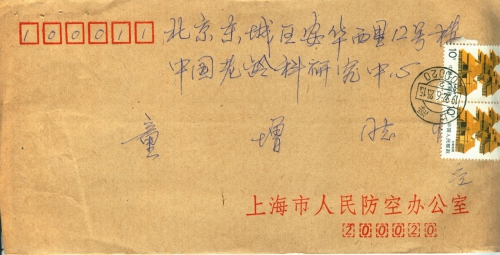 100011
北京东城区安华西里12号楼
中国老龄科研究中心
童 增 同志
上海市人民防空办公室
200020